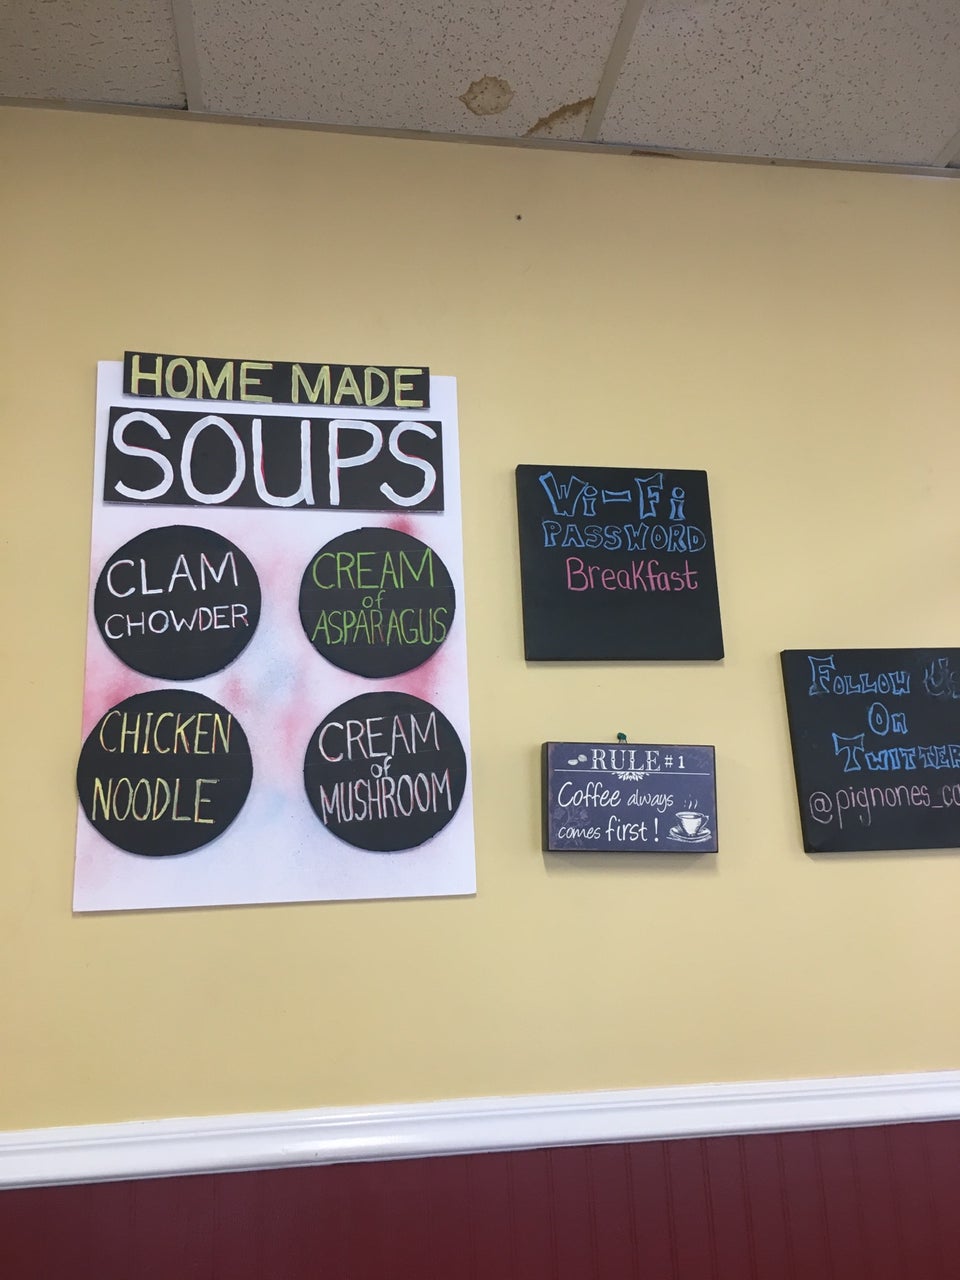 HOME MADE
SOUPS
CLAM
CHOWDER
CREAM
of
ASPARAGUS
CHICKEN
NOODLE
CREAM
of
MUSHROOM
Wi-Fi
PASSWORD
Breakfast
RULE #1
Coffee always
comes first!
FOLLOW
ON
TWITTER